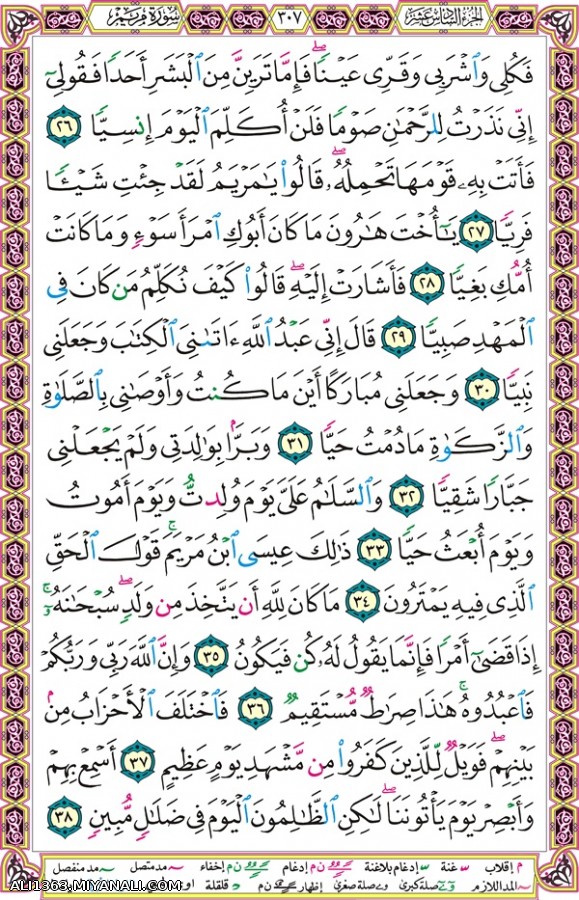 الجزء السادس عشر
٣٠٧
سورة مريم
فَكُلِى وَٱشْرَبِى وَقَرِّى عَيْنًاۖ فَإِمَّا تَرَيِنَّ مِنَ ٱلْبَشَرِ أَحَدًا فَقُولِىٓ
إِنِّى نَذَرْتُ لِلرَّحْمَٰنِ صَوْمًا فَلَنْ أُكَلِّمَ ٱلْيَوْمَ إِنسِيًّا ٢٦
فَأَتَتْ بِهِۦ قَوْمَهَا تَحْمِلُهُۥۖ قَالُوا۟ يَٰمَرْيَمُ لَقَدْ جِئْتِ شَيْـًٔا
فَرِيًّا ٢٧ يَٰٓأُخْتَ هَٰرُونَ مَا كَانَ أَبُوكِ ٱمْرَأَ سَوْءٍ وَمَا كَانَتْ
أُمُّكِ بَغِيًّا ٢٨ فَأَشَارَتْ إِلَيْهِۖ قَالُوا۟ كَيْفَ نُكَلِّمُ مَن كَانَ فِى
ٱلْمَهْدِ صَبِيًّا ٢٩ قَالَ إِنِّى عَبْدُ ٱللَّهِ ءَاتَىٰنِىَ ٱلْكِتَٰبَ وَجَعَلَنِى
نَبِيًّا ٣٠ وَجَعَلَنِى مُبَارَكًا أَيْنَ مَا كُنتُ وَأَوْصَٰنِى بِٱلصَّلَوٰةِ
وَٱلزَّكَوٰةِ مَا دُمْتُ حَيًّا ٣١ وَبَرًّۢا بِوَٰلِدَتِى وَلَمْ يَجْعَلْنِى
جَبَّارًا شَقِيًّا ٣٢ وَٱلسَّلَٰمُ عَلَىَّ يَوْمَ وُلِدتُّ وَيَوْمَ أَمُوتُ
وَيَوْمَ أُبْعَثُ حَيًّا ٣٣ ذَٰلِكَ عِيسَى ٱبْنُ مَرْيَمَۚ قَوْلَ ٱلْحَقِّ
ٱلَّذِى فِيهِ يَمْتَرُونَ ٣٤ مَا كَانَ لِلَّهِ أَن يَتَّخِذَ مِن وَلَدٍۖ سُبْحَٰنَهُۥٓۚ
إِذَا قَضَىٰٓ أَمْرًا فَإِنَّمَا يَقُولُ لَهُۥ كُن فَيَكُونُ ٣٥ وَإِنَّ ٱللَّهَ رَبِّى وَرَبُّكُمْ
فَٱعْبُدُوهُۚ هَٰذَا صِرَٰطٌ مُّسْتَقِيمٌ ٣٦ فَٱخْتَلَفَ ٱلْأَحْزَابُ مِنۢ
بَيْنِهِمْۖ فَوَيْلٌ لِّلَّذِينَ كَفَرُوا۟ مِن مَّشْهَدِ يَوْمٍ عَظِيمٍ ٣٧ أَسْمِعْ بِهِمْ
وَأَبْصِرْ يَوْمَ يَأْتُونَنَاۖ لَٰكِنِ ٱلظَّٰلِمُونَ ٱلْيَوْمَ فِى ضَلَٰلٍ مُّبِينٍ ٣٨
م إقلاب غنة إدغام بلاغنة ن م إدغام ن م إخفاء مد متصل مد منفصل
المد اللازم صلة كبرى صلة صغرى إظهار ن م قلقلة
ALI1363.MIYANALI.COM